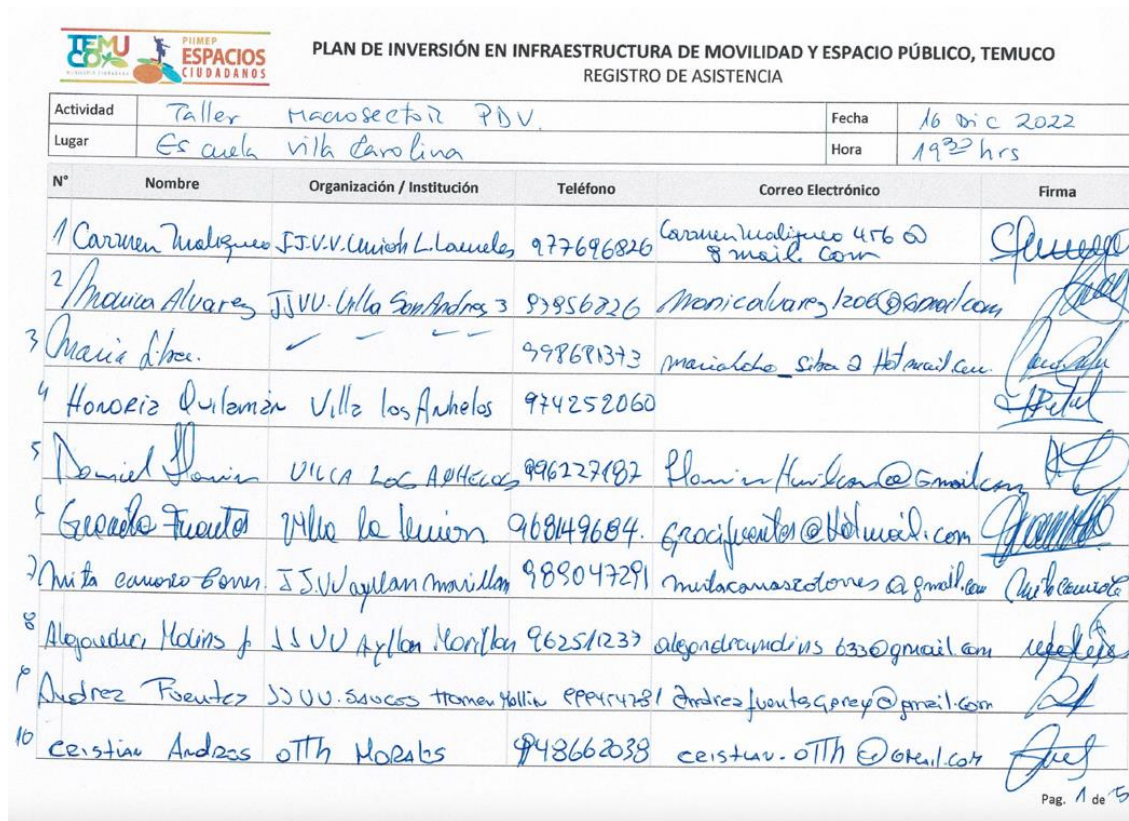 TEMUCO PIIMEP ESPACIOS CIUDADANOS
PLAN DE INVERSIÓN EN INFRAESTRUCTURA DE MOVILIDAD Y ESPACIO PÚBLICO, TEMUCO
REGISTRO DE ASISTENCIA
Actividad Taller Macrosector PDV. Fecha 16 Dic 2022
Lugar Escuela Villa Carolina Hora 19 30 hrs
N° Nombre Organización / Institución Teléfono Correo Electrónico Firma
1 Carmen Maliqueo JJ.V.V. Unión L. Laureles 977696826 Carmenmaliqueo 456 @ gmail. com
2 Monica Alvarez JJVV. Villa San Andres 3 93956826 monicalvarez1206@Gmail.com
3 Maria 998681373 Hotmail.com
4 Honoria Quilaman Villa los Anhelos 974252060
5 Daniel VILLA LOS ANHELOS 996227187 @Gmail.com
6 Graciela Fuentes Villa la Union 968149684. Gracifuentes@Hotmail.com
7 JJ.VV ayllan 989047291 @gmail.com
8 Alejandra Molins JJ VV Ayllan 962511237 alejandramolins 633@gmail.com
9 Andrez Fuentez JJ VV. Saucos @gmail.com
10 Cristian Andres OTTh MORALES 948662038 cristian.otth@Gmail.com
Pag. 1 de 5